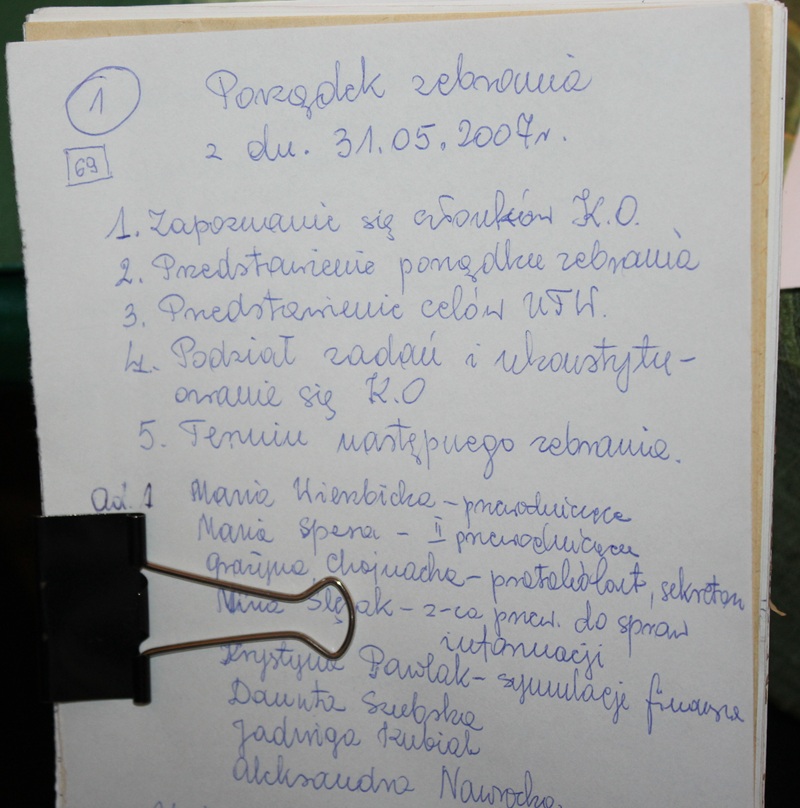 1
Porządek zebrania
z dn. 31.05.2007r.
69
1. Zapoznanie się członków K.O.
2. Przedstawienie porządku zebrania
3. Przedstawienie celów UTW.
4. Podział zadań i ukonstytu-
owanie się K.O
5. Termin następnego zebrania.
ad. 1 Maria Wierzbicka - przewodnicząca
Maria Spera - II przewodnicząca
Grażyna Chojnacka - protokólant, sekretarz
Nina - z-ca przew. do spraw
informacji
Krystyna Pawlak - symulacje finansowe
Danuta
Jadwiga Kubiak
Aleksandra Nawrocka.